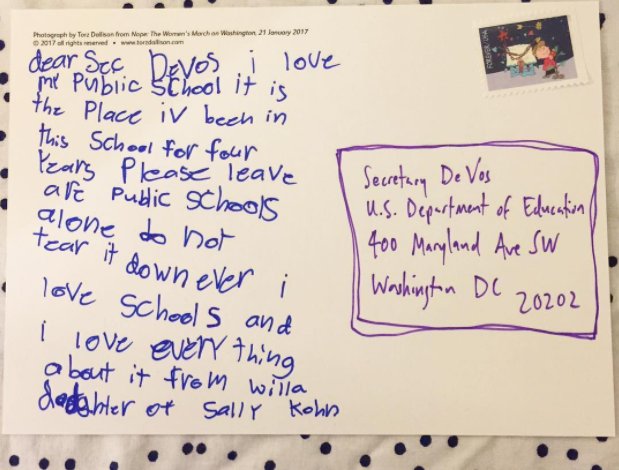 Photograph by Torz Dallison from Nope: The Women's March on Washington, 21 January 2017
© 2017 all rights reserved • www.torzdallison.com
dear Sec DeVos i love
my Public School it is
the Place iv been in
this School for four
Years Please leave
are Public schools
alone do not
tear it down ever i
love schools and
i love everything
about it from willa
dodghter of Sally Kohn
Secretary DeVos
U.S. Department of Education
400 Maryland Ave SW
Washington DC
20202
FOREVER USA